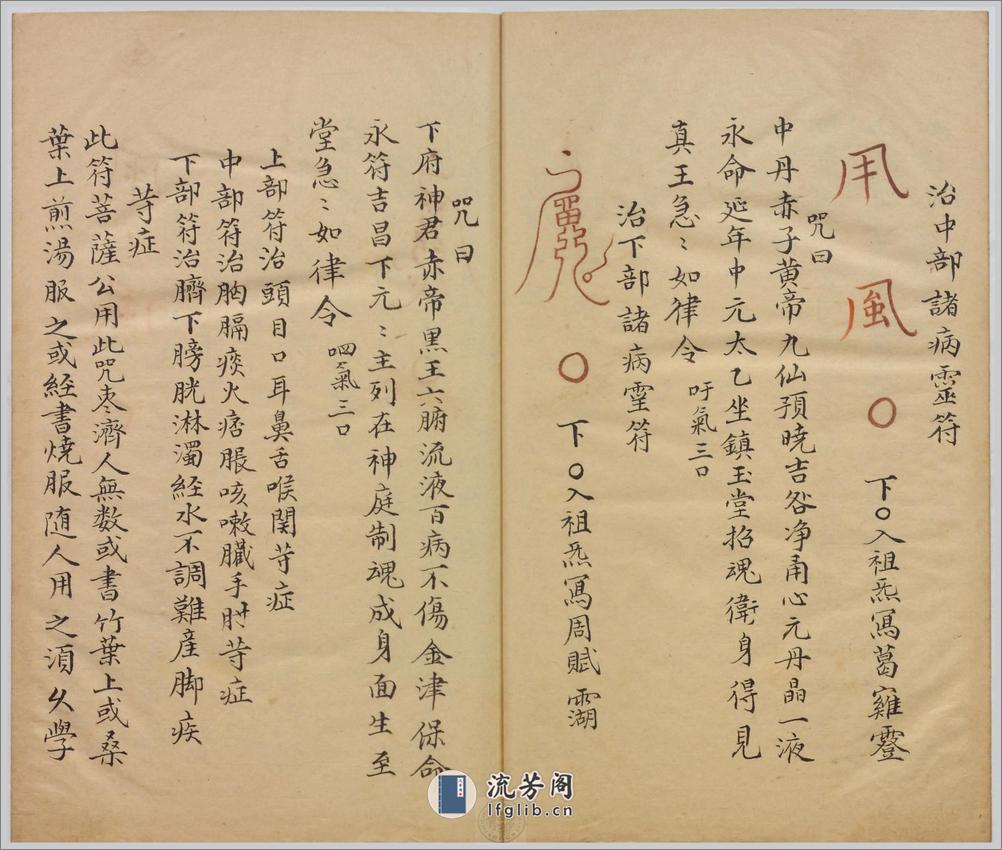 治中部諸病靈符
用 風 〇 下〇入祖炁寫葛雍霻
咒曰
中丹赤子黄帝九仙預曉吉咎净甬心元丹晶一液
永命延年中元太乙坐鎮玉堂招魂衛身得見
真王急〻如律令 吁氣三口
治下部諸病霊符
〇 下〇入祖炁寫周賦霩
咒曰
下府神君赤帝黒王六腑流液百病不傷金津保命
永符吉昌下元〻主列在神庭制魂成身面生至
堂急〻如律令 呬氣三口
上部符治頭目口耳鼻舌喉関䒭症
中部符治胸膈痰火痞脹咳嗽臟手肘䒭症
下部符治臍下膀胱淋濁経水不調難産脚疾
䒭症
此符菩薩公用此咒枣濟人無数或書竹葉上或桑
葉上煎湯服之或経書燒服随人用之須久學
流芳阁
lfglib.cn